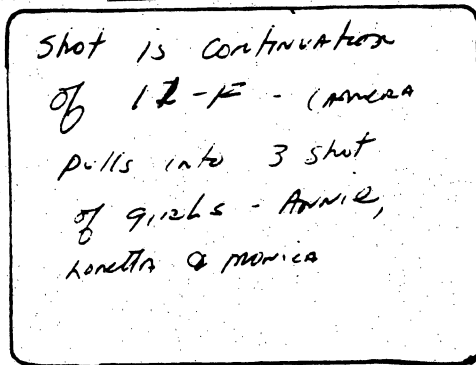 Shot is continuation
of 12-F - Camera
pulls into 3 shot
of girls - Annie,
Loretta & Monica